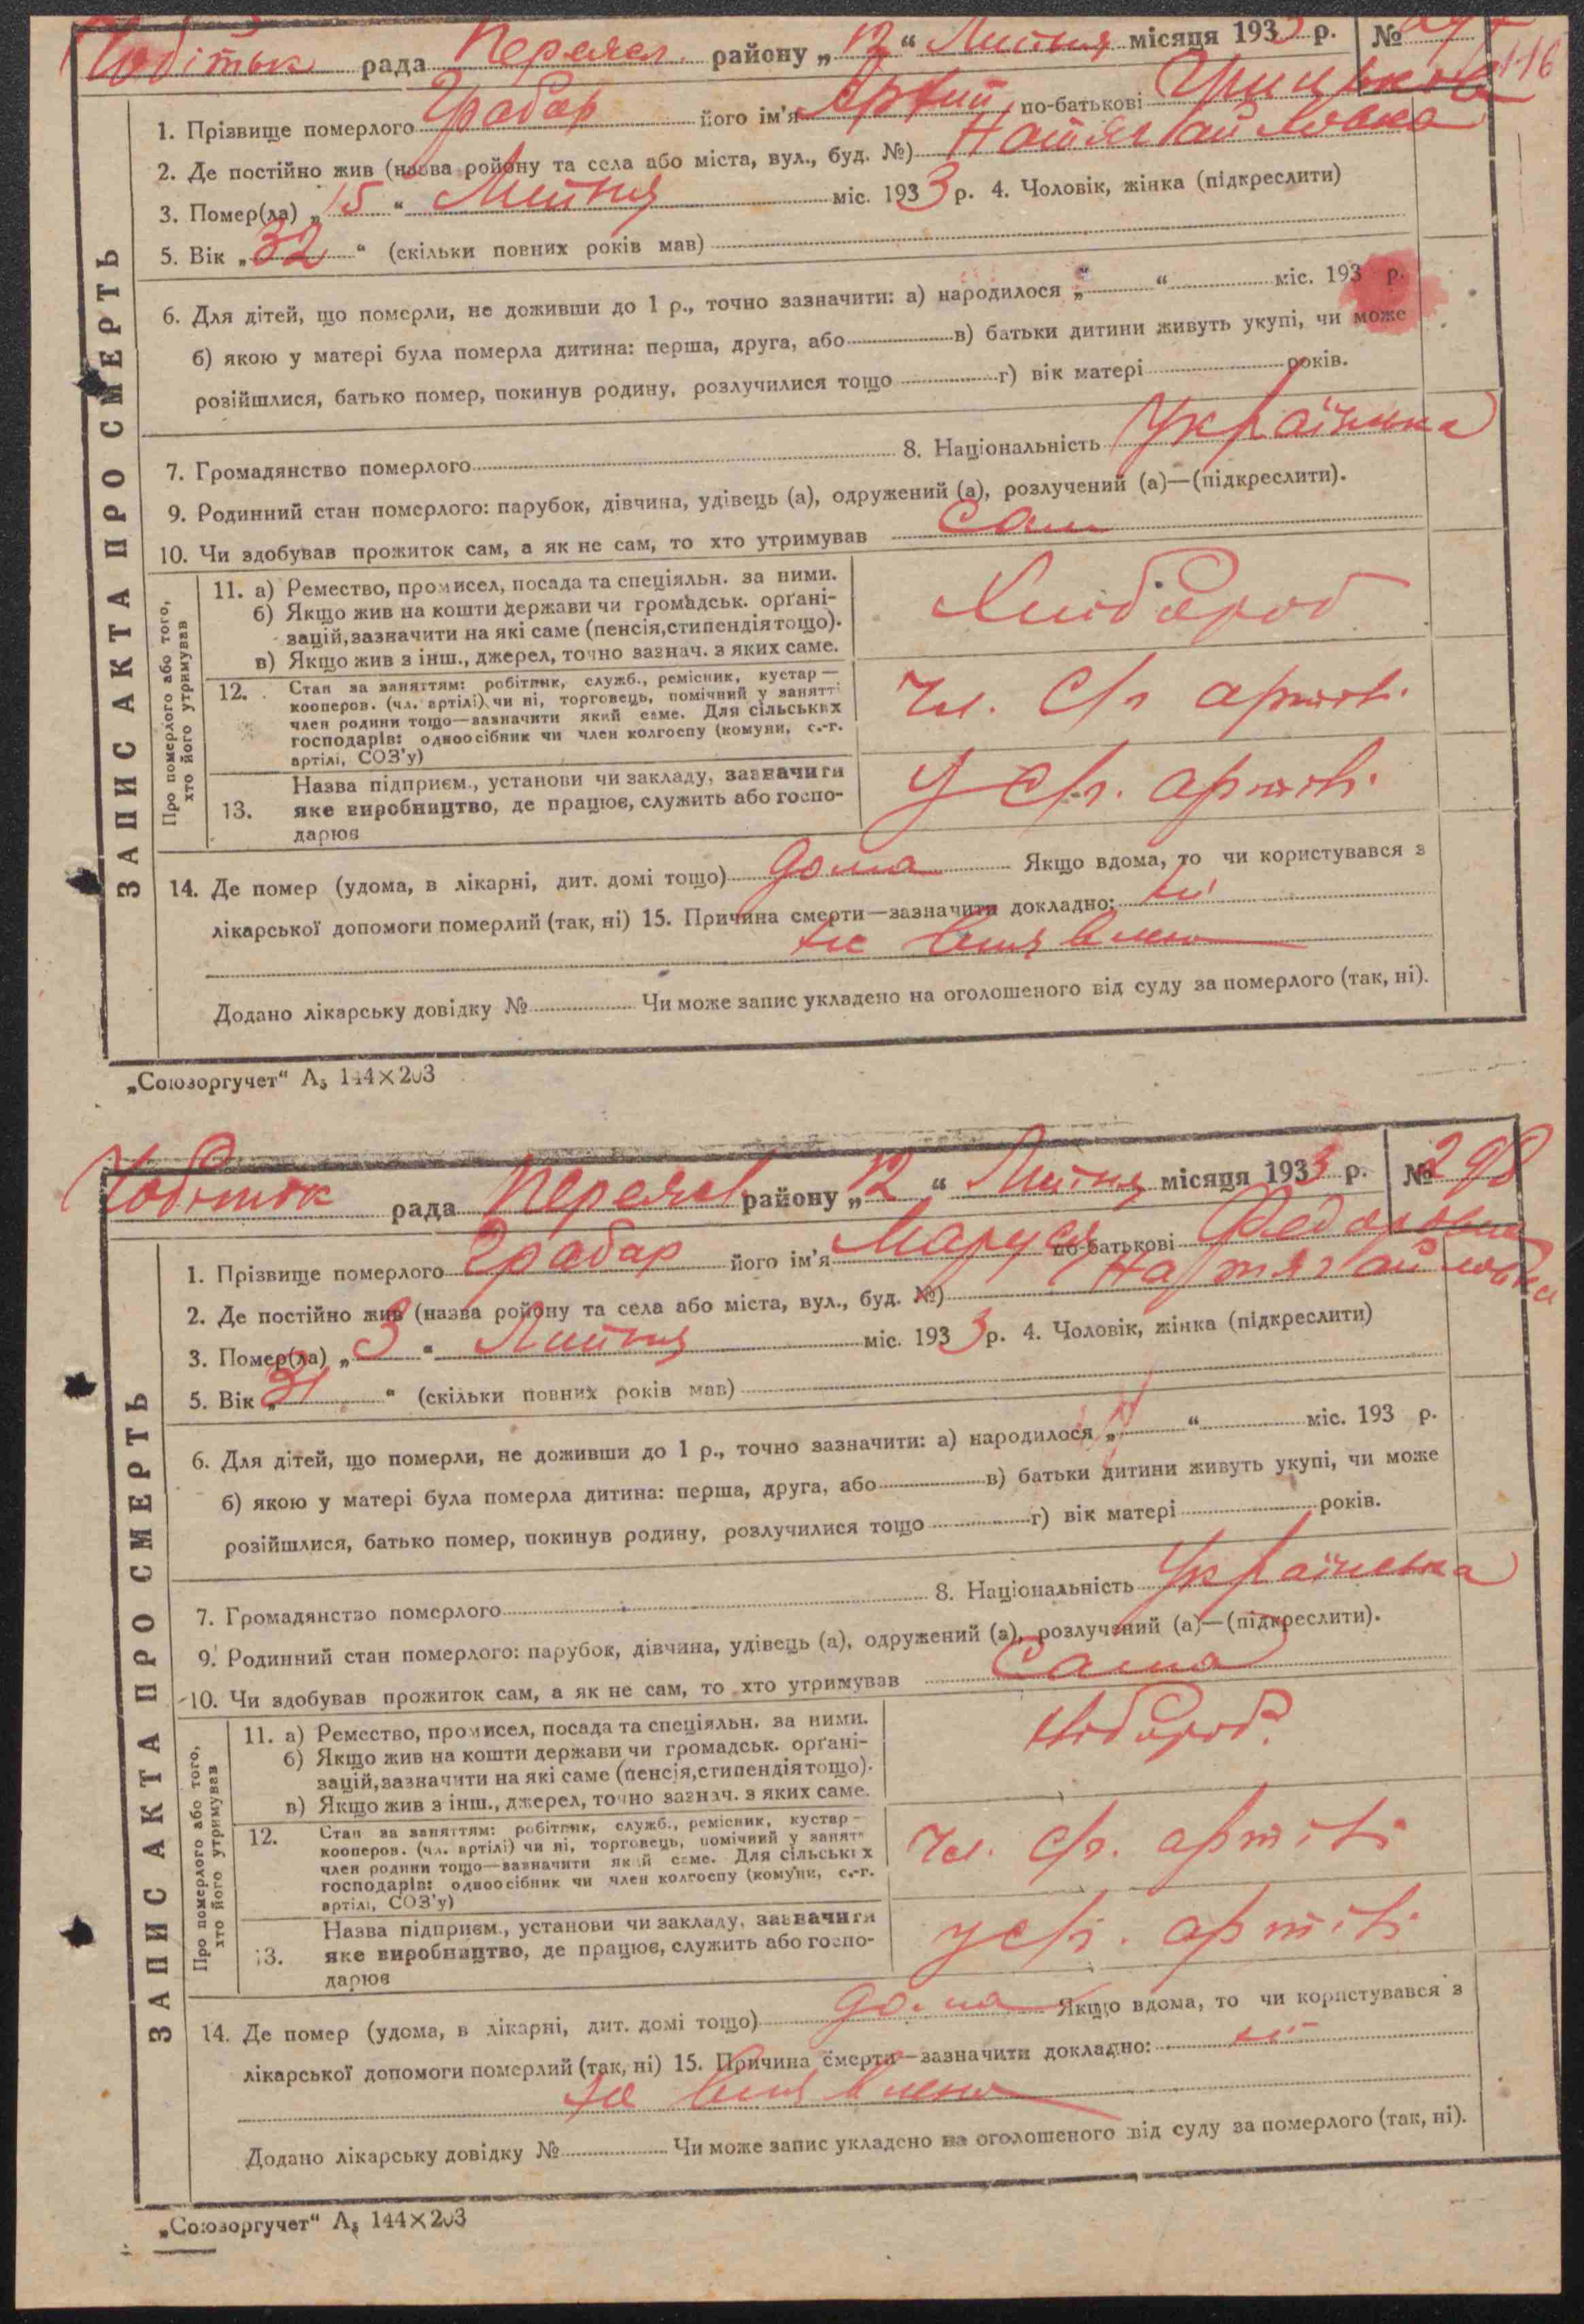 рада Переясл. району „12“ Липня місяця 1933 р. №
116
1. Прізвище померлого Грабар його ім'я по-батькові
2. Де постійно жив (назва ройону та села або міста, вул., буд. №)
3. Помер(ла) „15“ Липня міс. 1933 р. 4. Чоловік, жінка (підкреслити)
5. Вік „32“ (скільки повних років мав)
6. Для дітей, що померли, не доживши до 1 р., точно зазначити: а) народилося „ “ міс. 193 р.
б) якою у матері була померла дитина: перша, друга, або в) батьки дитини живуть укупі, чи може
розійшлися, батько помер, покинув родину, розлучилися тощо г) вік матері років.
7. Громадянство померлого 8. Національність Українка
9. Родинний стан померлого: парубок, дівчина, удівець (а), одружений (а), розлучений (а)—(підкреслити).
10. Чи здобував прожиток сам, а як не сам, то хто утримував сам
ЗАПИС АКТА ПРО СМЕРТЬ
Про померлого або того,
хто його утримував
11. а) Ремество, промисел, посада та спеціяльн. за ними.
б) Якщо жив на кошти держави чи громадськ. орґані-
зацій, зазначити на які саме (пенсія, стипендія тощо).
в) Якщо жив з інш., джерел, точно зазнач. з яких саме.
Хлібороб
12. Стан за заняттям: робітник, служб., ремісник, кустар—
кооперов. (чл. артілі) чи ні, торговець, помічний у занятті
член родини тощо—зазначити який саме. Для сільських
господарів: одноосібник чи член колгоспу (комуни, с.-г.
артілі, СОЗ'у)
Чл. с/г артілі.
13. Назва підприєм., установи чи закладу, зазначити
яке виробництво, де працює, служить або госпо-
дарює
У с/г. артілі.
14. Де помер (удома, в лікарні, дит. домі тощо) дома Якщо вдома, то чи користувався з
лікарської допомоги померлий (так, ні) 15. Причина смерти—зазначити докладно: ні
не виявлено
Додано лікарську довідку № Чи може запис укладено на оголошеного від суду за померлого (так, ні).
„Союзоргучет“ А₅ 144×203
рада Переясл. району „12“ Липня місяця 1933 р. № 298
1. Прізвище померлого Грабар його ім'я Маруся по-батькові Федоровна
2. Де постійно жив (назва ройону та села або міста, вул., буд. №) Натягайловка
3. Помер(ла) „3“ Липня міс. 1933 р. 4. Чоловік, жінка (підкреслити)
5. Вік „31“ (скільки повних років мав)
6. Для дітей, що померли, не доживши до 1 р., точно зазначити: а) народилося „ “ міс. 193 р.
б) якою у матері була померла дитина: перша, друга, або в) батьки дитини живуть укупі, чи може
розійшлися, батько помер, покинув родину, розлучилися тощо г) вік матері років.
7. Громадянство померлого 8. Національність Українська
9. Родинний стан померлого: парубок, дівчина, удівець (а), одружений (а), розлучений (а)—(підкреслити).
10. Чи здобував прожиток сам, а як не сам, то хто утримував Сама
ЗАПИС АКТА ПРО СМЕРТЬ
Про померлого або того,
хто його утримував
11. а) Ремество, промисел, посада та спеціяльн. за ними.
б) Якщо жив на кошти держави чи громадськ. орґані-
зацій, зазначити на які саме (пенсія, стипендія тощо).
в) Якщо жив з інш., джерел, точно зазнач. з яких саме.
12. Стан за заняттям: робітник, служб., ремісник, кустар—
кооперов. (чл. артілі) чи ні, торговець, помічний у занятті
член родини тощо—зазначити який саме. Для сільських
господарів: одноосібник чи член колгоспу (комуни, с.-г.
артілі, СОЗ'у)
Чл. с/г. артілі
13. Назва підприєм., установи чи закладу, зазначити
яке виробництво, де працює, служить або госпо-
дарює
у с/г. артілі
14. Де помер (удома, в лікарні, дит. домі тощо) дома Якщо вдома, то чи користувався з
лікарської допомоги померлий (так, ні) 15. Причина смерти—зазначити докладно: ні
не виявлено
Додано лікарську довідку № Чи може запис укладено на оголошеного від суду за померлого (так, ні).
„Союзоргучет“ А₅ 144×203